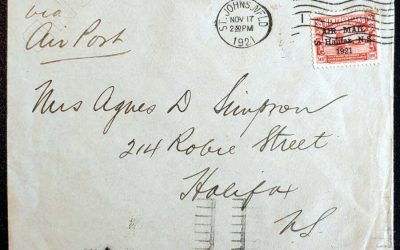 via
Air Post
ST. JOHN'S, NFLD
NOV 17
2 PM
1921
AIR MAIL
to Halifax, N.S.
1921
Mrs Agnes D Simpson
214 Robie Street
Halifax
NS